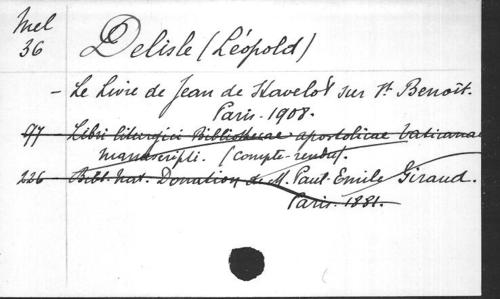 Mel
36
Delisle (Léopold)
- Le Livre de Jean de Stavelot sur St Benoît.
Paris. 1908.
97 - Libri liturgici Bibliothecae apostolicae Vaticanae
manuscripti. (compte-rendu).
226 - Bibl. Nat. Donation de M. Paul-Emile Giraud.
Paris. 1881.